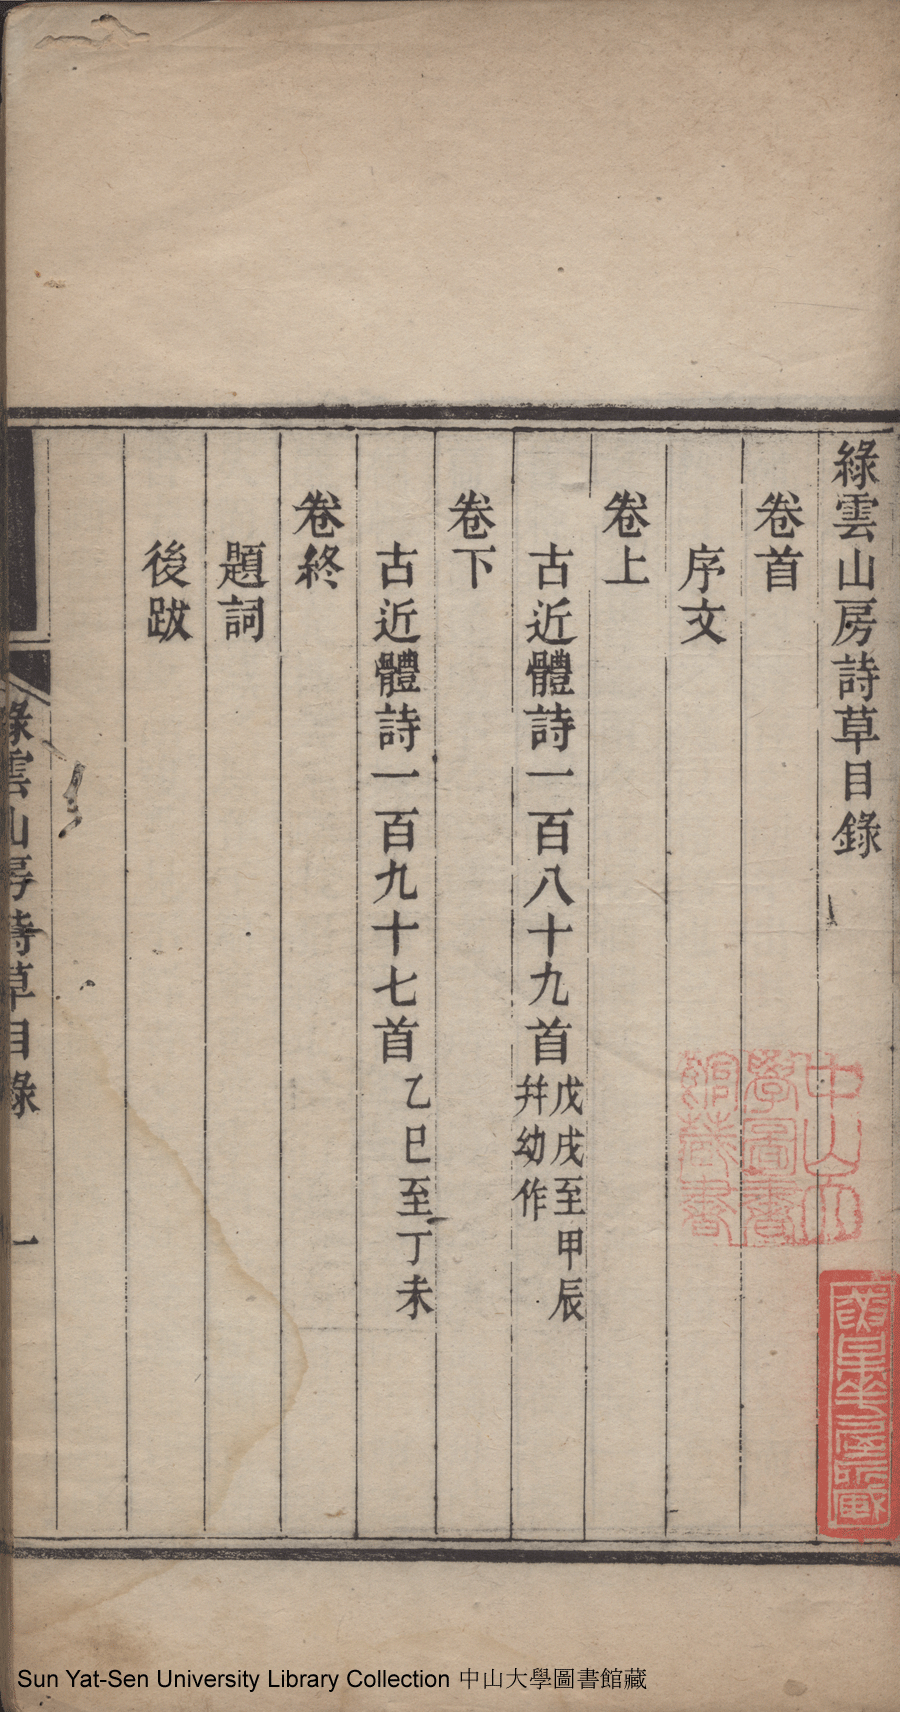 綠雲山房詩草目錄
卷首
序文
卷上
古近體詩一百八十九首
戊戌至甲辰
幷幼作
卷下
古近體詩一百九十七首
乙巳至丁未
卷終
題詞
後跋
綠雲山房詩草目錄
一
中山大
學圖書
館藏書
Sun Yat-Sen University Library Collection 中山大學圖書館藏